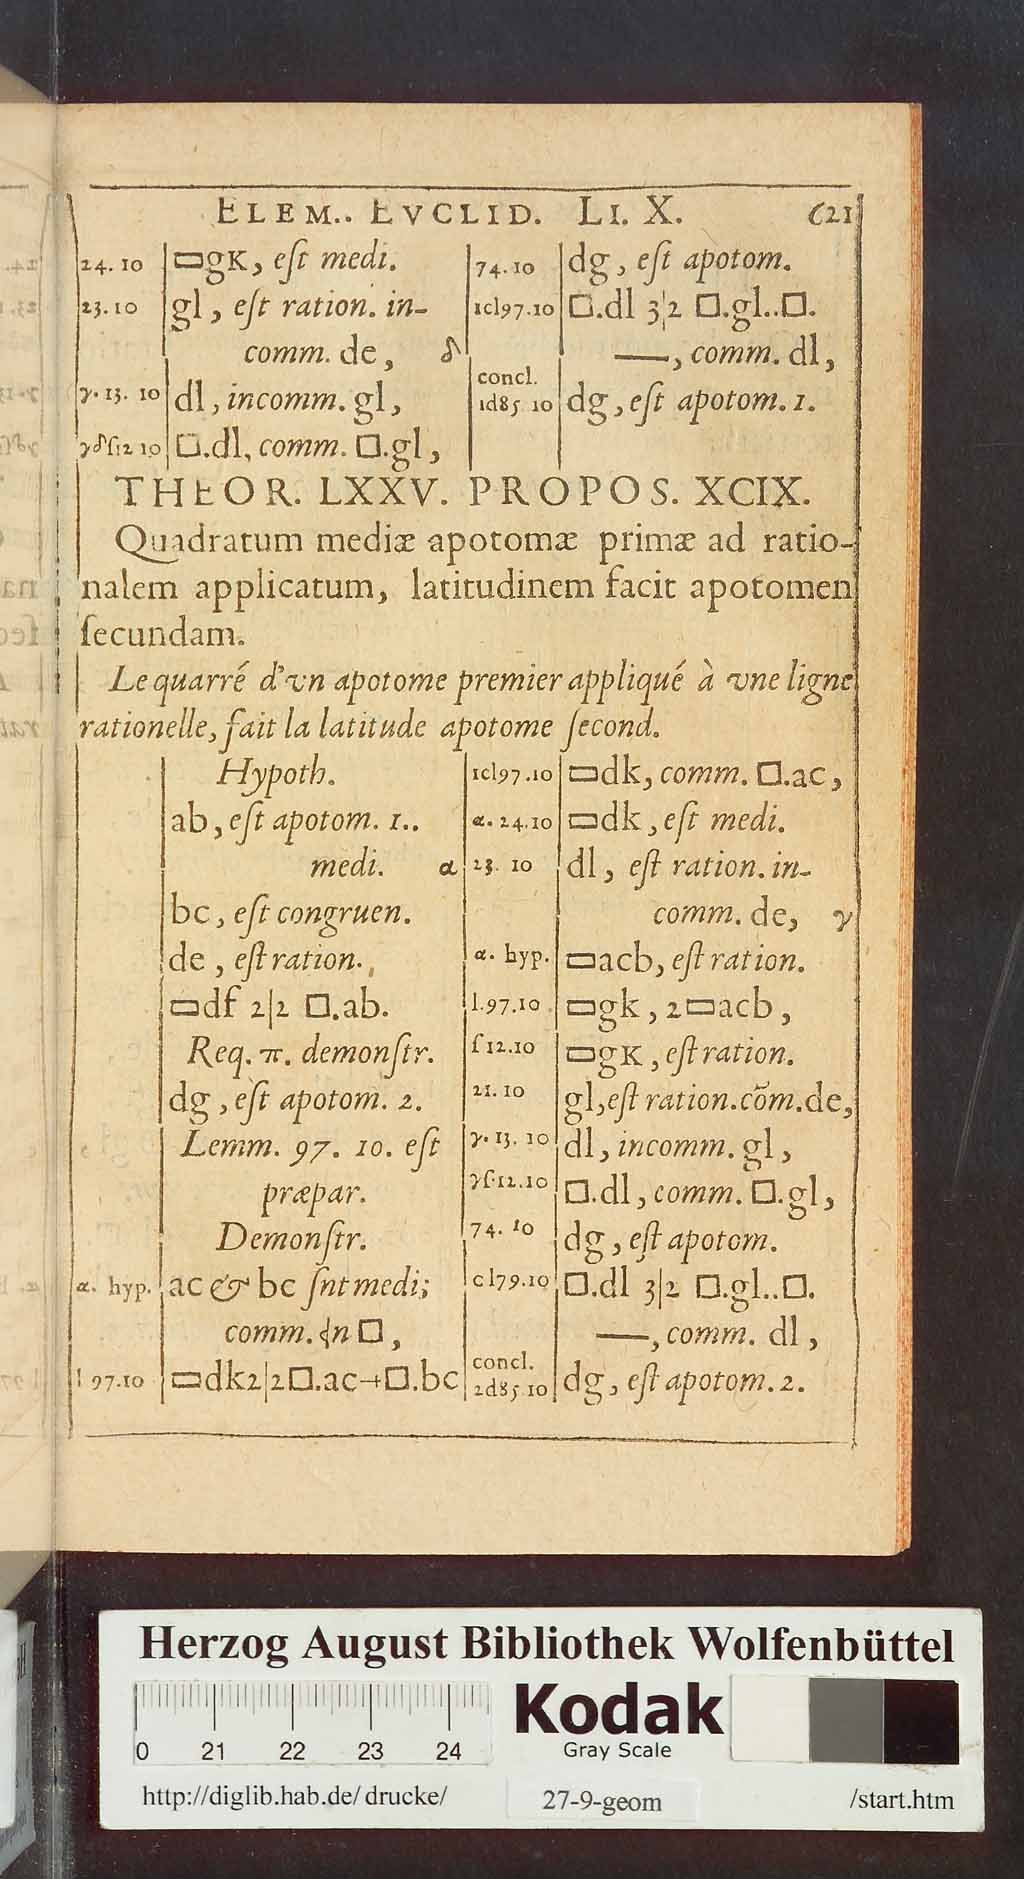 ELEM.. EVCLID. LI. X. 621
24. 10 ▭gK, eſt medi.
23. 10 gl, eſt ration. in-
comm. de, δ
γ. 13. 10 dl, incomm. gl,
γδſ12 10 □.dl, comm. □.gl,
74. 10 dg, eſt apotom.
1cl97.10 □.dl 3|2 □.gl..□.
—, comm. dl,
concl.
1d85 10 dg, eſt apotom. 1.
THEOR. LXXV. PROPOS. XCIX.
Quadratum mediæ apotomæ primæ ad ratio-
nalem applicatum, latitudinem facit apotomen
ſecundam.
Le quarré d'vn apotome premier appliqué à vne ligne
rationelle, fait la latitude apotome ſecond.
Hypoth.
ab, eſt apotom. 1..
medi. α
bc, eſt congruen.
de, eſt ration.
▭df 2|2 □.ab.
Req. π. demonſtr.
dg, eſt apotom. 2.
Lemm. 97. 10. eſt
præpar.
Demonſtr.
α. hyp. ac & bc ſnt medi;
comm. ⊰n □,
l 97.10 ▭dk2|2□.ac+□.bc
1cl97.10 ▭dk, comm. □.ac,
α. 24.10 ▭dk, eſt medi.
23. 10 dl, eſt ration. in-
comm. de, γ
α. hyp. ▭acb, eſt ration.
l.97.10 ▭gk, 2▭acb,
ſ 12.10 ▭gK, eſt ration.
21. 10 gl, eſt ration. cōm. de,
γ. 13. 10 dl, incomm. gl,
γſ.12.10 □.dl, comm. □.gl,
74. 10 dg, eſt apotom.
cl79.10 □.dl 3|2 □.gl..□.
—, comm. dl,
concl.
2d85.10 dg, eſt apotom. 2.
Herzog August Bibliothek Wolfenbüttel
0 21 22 23 24
Kodak
Gray Scale
http://diglib.hab.de/drucke/ 27-9-geom /start.htm